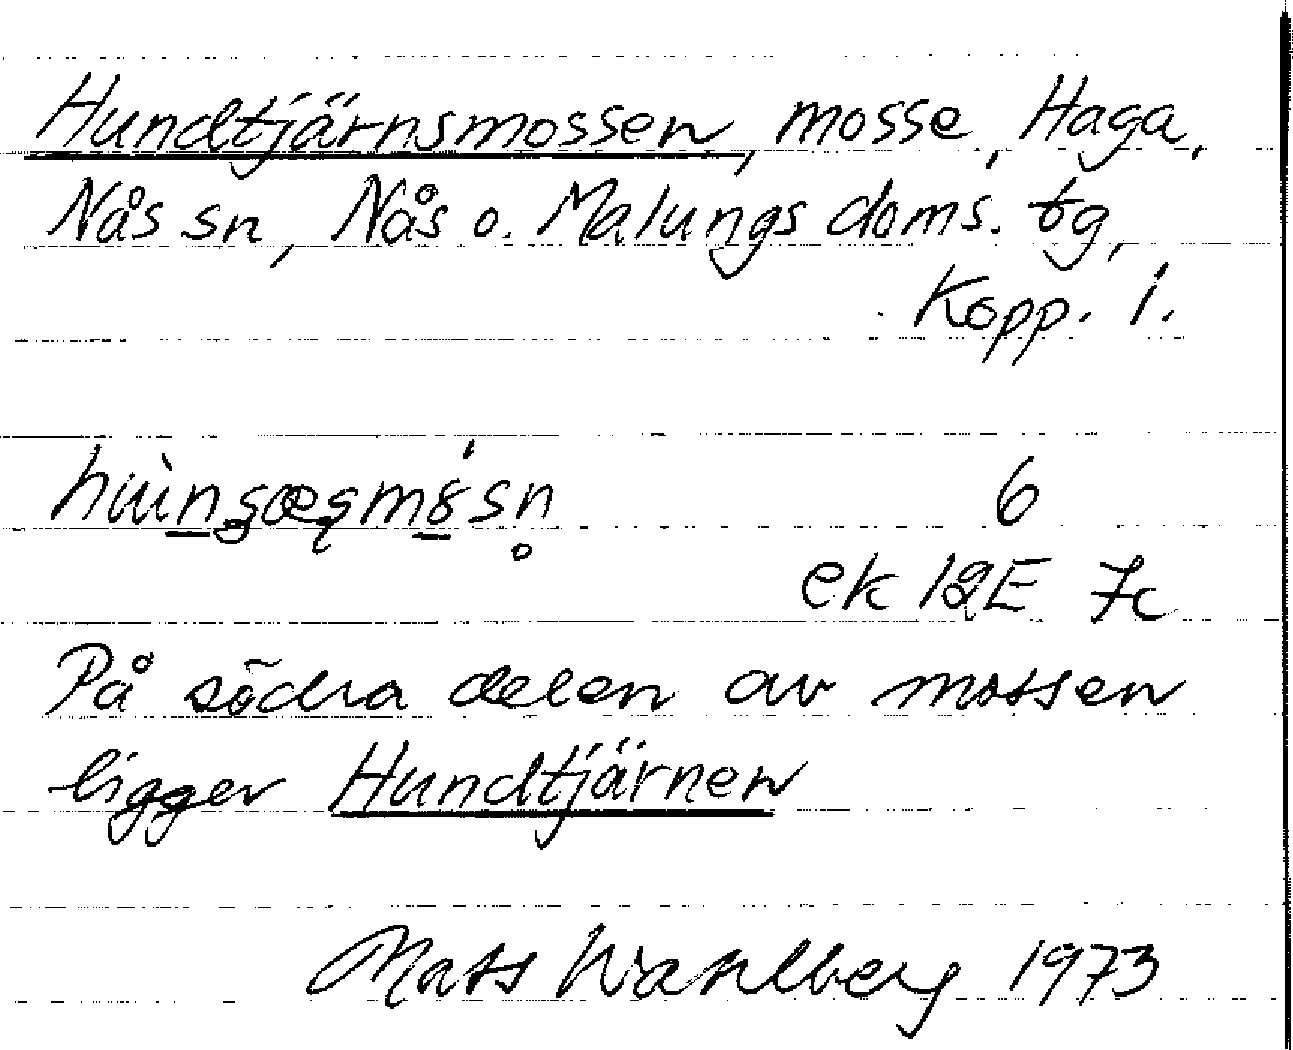 Hundtjärnsmossen, mosse, Haga,
Nås sn, Nås o. Malungs doms. tg,
Kopp. l.
6
ek 12E 7c
På södra delen av mossen
ligger Hundtjärnen
Mats Wahlberg 1973